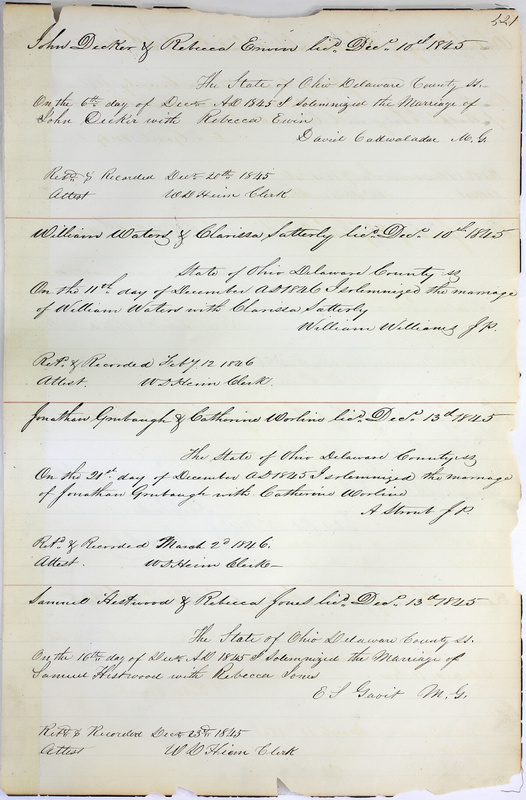 521
John Decker & Rebecca Erwin lic.d Dec.r 10th 1845
The State of Ohio Delaware County ss.
On the 6th day of Decr AD 1845 I Solemnized the Marriage of
John Decker with Rebecca Ewin
David Cadwalader M.G.
Retd & Recorded Decr 20th 1845
Attest W D Heim Clerk
William Waters & Clarissa Satterly lic.d Dec.r 10th 1845
State of Ohio Delaware County ss
On the 11th day of December AD 1846 I solemnized the marriage
of William Waters with Clarissa Satterly
William Williams J.P.
Ret.d & Recorded Feby 12 1846
Attest. W D Heim Clerk.
Jonathan Grubaugh & Catherine Worline lic.d Dec.r 13d 1845
The State of Ohio Delaware County ss
On the 21st day of December AD 1845 I solemnized the marriage
of Jonathan Grubaugh with Catherine Worline
A Strout J.P.
Ret.d & Recorded March 2d 1846.
Attest. W D Heim Clerk
Samuel Hestwood & Rebecca Jones lic.d Dec.r 13d 1845
The State of Ohio Delaware County ss.
On the 16th day of Decr AD 1845 I Solemnized the Marriage of
Samuel Hestwood with Rebecca Jones
E S Gavit M.G.
Retd & Recorded Decr 23d 1845
Attest W D Heim Clerk